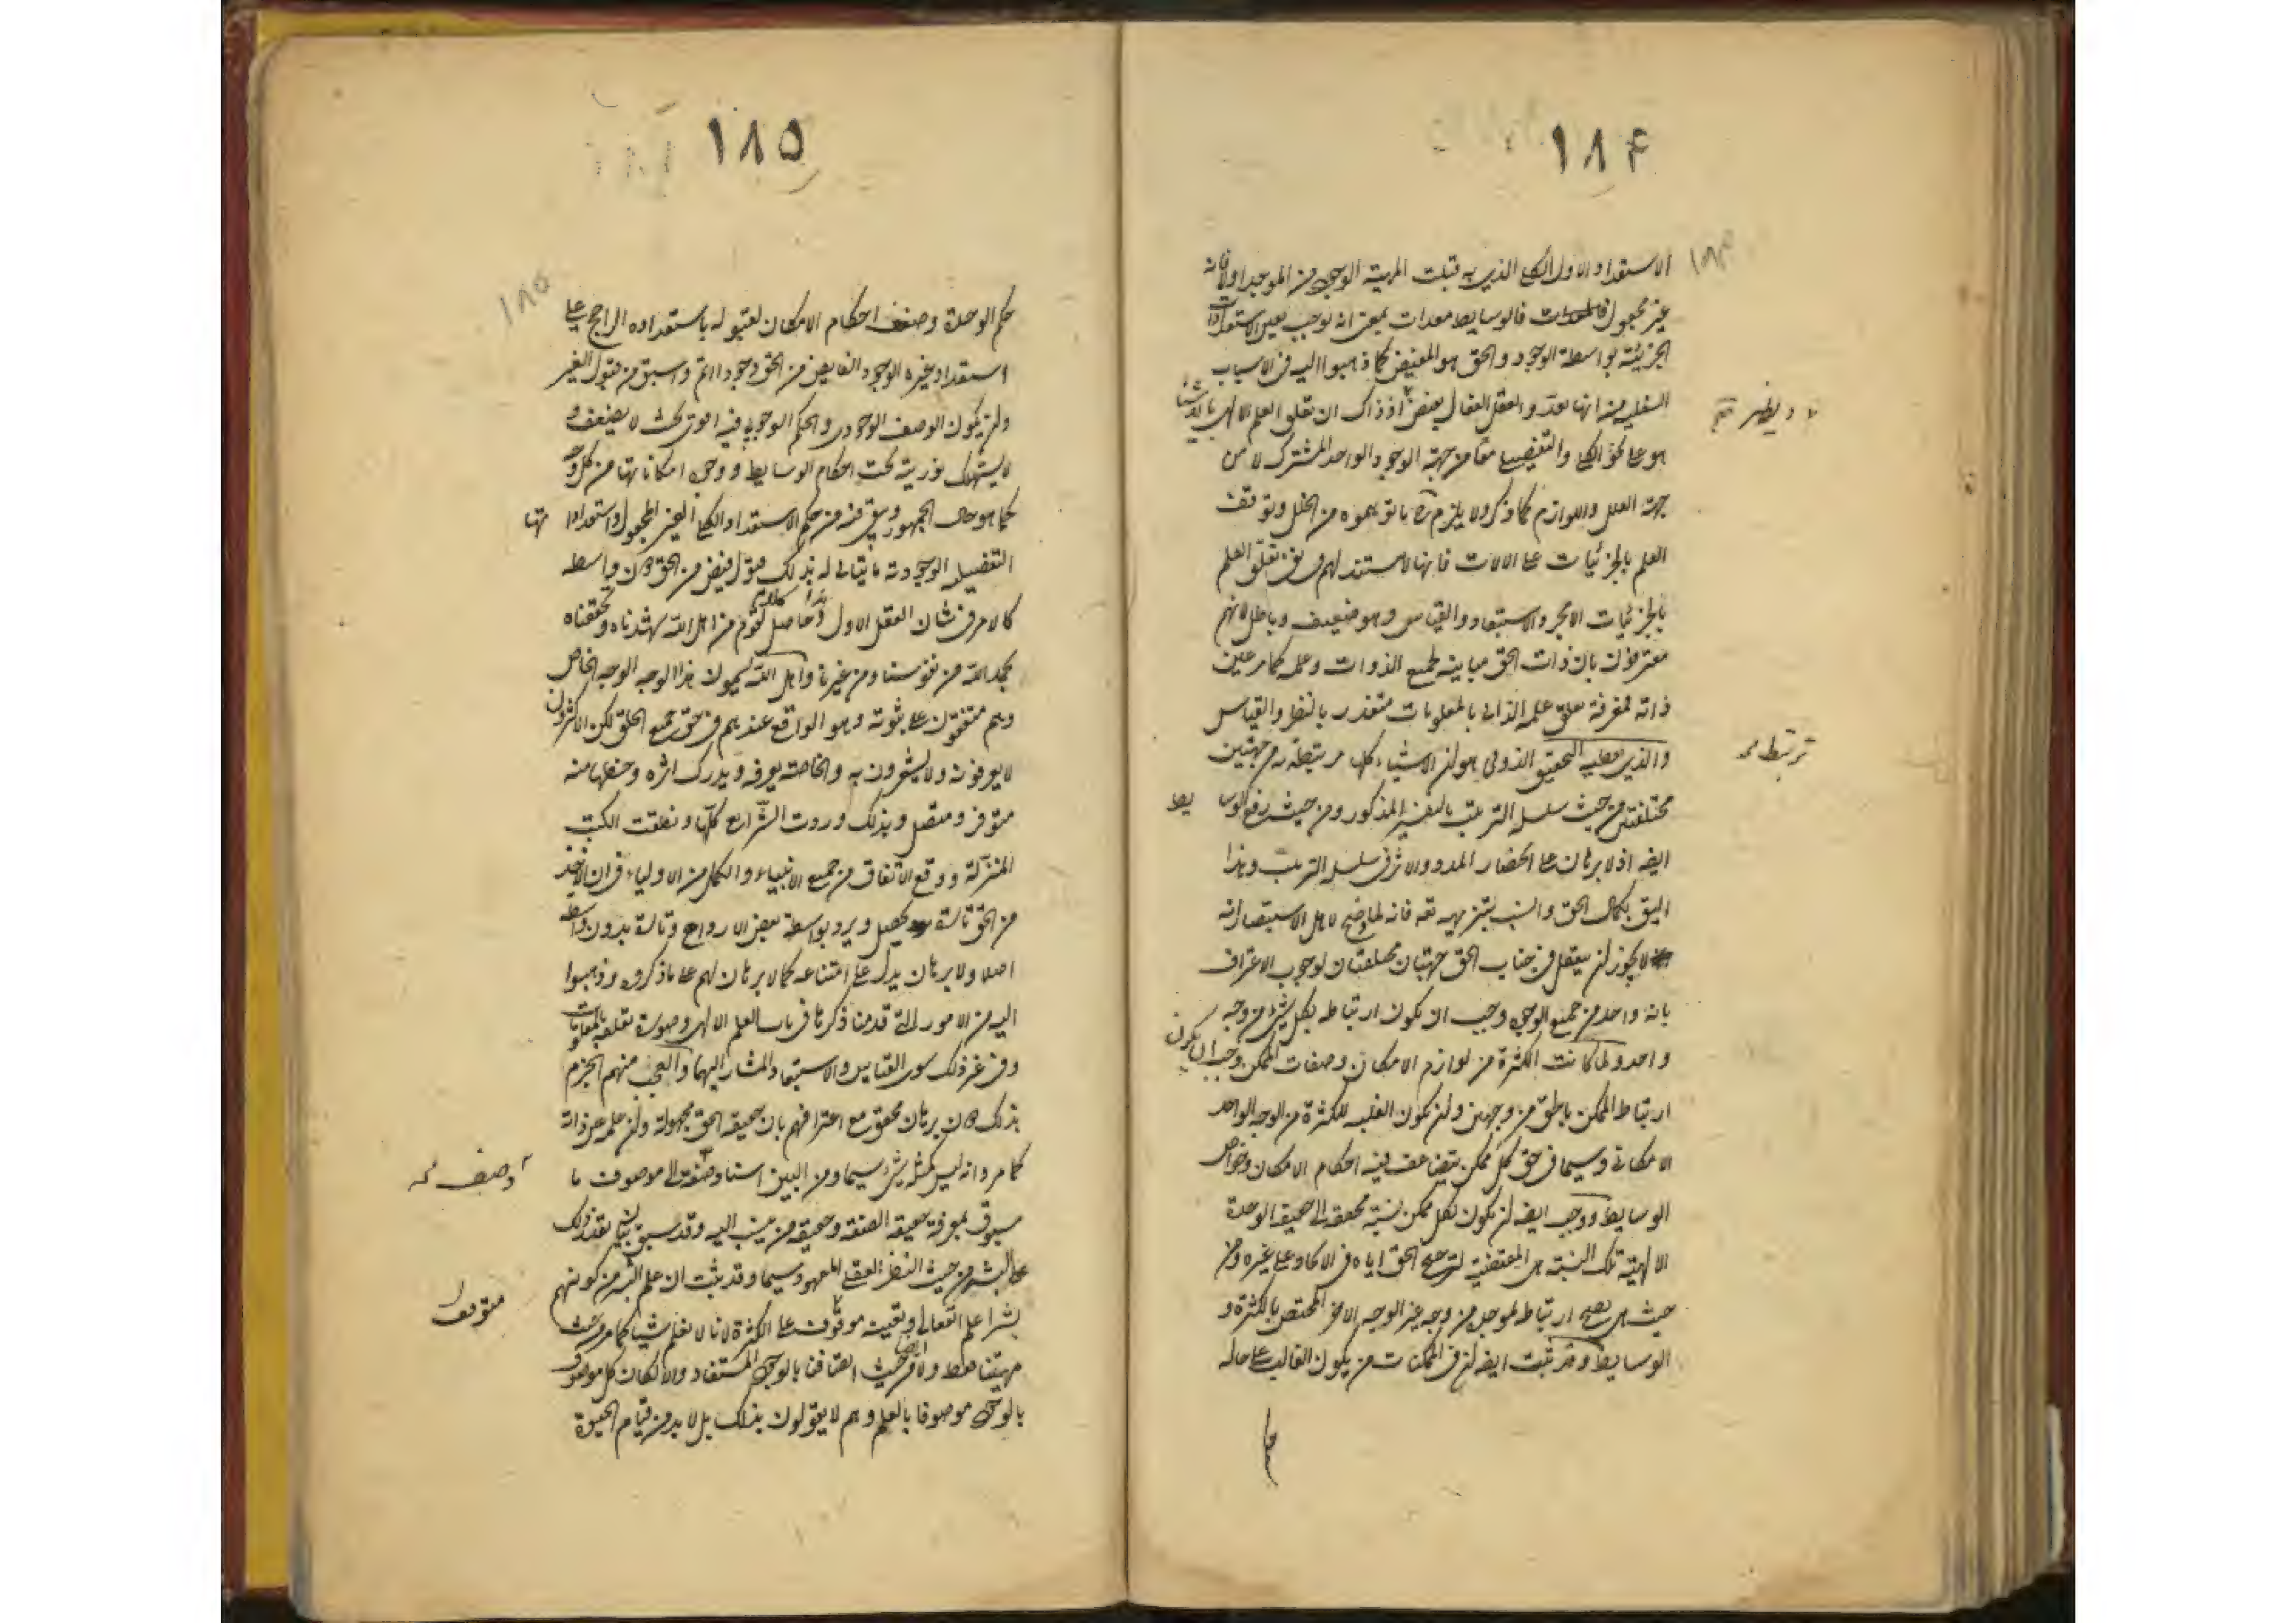 ١٨۴
الاستعداد الاول الكلى الذى به قبلت المهية الوجود من الموجد اولا فانه
غير مجعول فالوسايط معدات بمعنى انه توجب تعين الاستعدادات
الجزئية بواسطة الوجود والحق هو المفيض كما ذهبوا اليه فى الاسباب
السفلية من انها تعد والعقل الفعال يفيض اذ ذاك ان تعلق العلم الالهى بالاشياء
هو على نحو الكلى والتفصيلى معا من جهة الوجود الواحد المشترك لا من
جهة العلل واللوازم كما ذكر ولا يلزم ح ما توهموه من الخلل وتوقف
العلم بالجزئيات على الالات فانها لا مستند لهم فى نفى تعلق العلم
بالجزئيات الا مجرد الاستبعاد والقياس وهو ضعيف وباطل لانهم
معترفون بان ذات الحق مباينه لجميع الذوات وعلمه كما مر عين
ذاته فمعرفة تعلق علمه الذاتى بالمعلومات متعذر بالنظر والقياس
والذى يعطيه التحقيق الذوقى هو ان الاشياء كلها مرتبطة به من جهتين
مختلفتين من حيث سلسلة الترتيب بالتفسير المذكور ومن حيث رفع الوسايط
ايضا اذ لا برهان على انحصار المدد والاثر فى سلسلة الترتيب وهذا
اليق بكمال الحق وانسب بتنزيهه تعه فانه لما وضح لاهل الاستبصار انه
لا يجوز ان يتعقل فى جناب الحق جهتان مختلفتان لوجوب الاعتراف
بانه واحد من جميع الوجوه وجب ان يكون ارتباطه بكل شئ من وجه
واحد ولما كانت الكثرة من لوازم الامكان وصفات الممكن وجب ان يكون
ارتباط الممكن بالحق من وجهين وان يكون الغلبه للكثرة من الوجه الواحد
الامكانى وسيما فى حق كل ممكن يتضاعف فيه احكام الامكان وخواص
الوسايط ووجب ايضا ان يكون لكل ممكن نسبة محققة الى حقيقة الوحدة
الالهية تلك النسبة هى المقتضية لترجيح الحق اياه فى الايجاد على غيره ومن
حيث هى يصح ارتباطه بموجده من وجه غير الوجه الاخر المختص بالكثرة و
الوسايط وقد ثبت ايضا ان فى الممكنات من يكون الغالب على حاله
ترتبط
١٨٥
حكم الوحدة وضعف احكام الامكان لقبوله باستعداده الراجح على
استعداد غيره الوجود الفايض من الحق وجودا اتم واسبق من قبول الغير
وان يكون الوصف الوجودى والحكم الوجوبى فيه اقوى بحيث لا يضعف و
لا يستهلك نوريته تحت احكام الوسايط ووجوه امكاناتها من كل وجه
كما هو حال الجمهور وبقى فيه من حكم الاستعداد الكلى الغير المجعول واستعداداتها
التفصيلى الوجودية ما يتاتى له بذلك قبول فيض من الحق دون واسطه
كالامر فى شان العقل الاول هذا كلام حاصل لقوم من اهل الله شهدناه وتحققناه
بحمد الله من نفوسنا ومن غيرنا واهل الله يسمون هذا الوجه الوجه الخاص
وهم متفقون على ثبوته وهو الواقع عندهم فى حق جميع الخلق لكن الاكثرون
لا يعرفونه ولا يشعرون به والخاصة يعرفه ويدرك اثره وحظها منه
متوفر ومتصل وبذلك وردت الشرايع كلها ونطقت الكتب
المنزلة ووقع الاتفاق من جميع الانبياء والكمل من الاولياء فى ان الاخذ
من الحق تارة يحصل ويرد بواسطة بعض الارواح وتارة بدون واسطة
اصلا ولا برهان يدل على امتناعه كما لا برهان لهم على ما ذكروه وذهبوا
اليه من الامور التى قدمنا ذكرها فى باب العلم الالهى وصورة تعلقه بالمعلومات
وفى غير ذلك سوى القياس والاستبعاد المشار اليهما والعجب منهم الجزم
بذلك دون برهان محقق مع اعترافهم بان حقيقة الحق مجهولة وان علمه عين ذاته
كما مر وانه ليس كمثله شئ سيما ومن البين اسناد صفة الى موصوف ما
مسبوق بمعرفة حقيقة الصفة وحقيقة من ينسب اليه وقد سبق بيان تعذر ذلك
على البشر من حيث النظر العقلى المعهود سيما وقد ثبت ان علم البشر من كونهم
بشرا علم انفعالى وتعينه موقوف على الكثرة لانا لا نعلم شيئا كما مر من حيث
مهيتنا فقط ولا من حيث اتصافنا بالوجود المستفاد والا لكان كل موصوف
بالوجود موصوفا بالعلم وهم لا يقولون بذلك بل لا بد من قيام الحيوة
وصف
متوقف